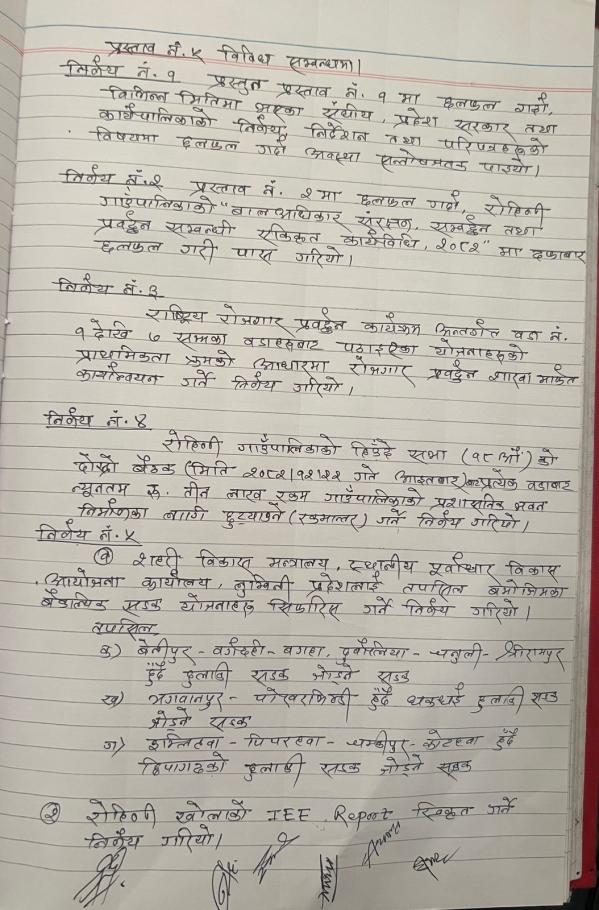 प्रस्ताव नं. ५ विविध सम्बन्धमा।
निर्णय नं. १ प्रस्तुत प्रस्ताव नं. १ मा छलफल गर्दा,
विभिन्न मितिमा भएका संघीय, प्रदेश सरकार तथा
कार्यपालिकाको निर्णय, निर्देशन तथा परिपत्रहरुको
विषयमा छलफल गर्दा अवस्था सन्तोषजनक पाइयो।
निर्णय नं. २ प्रस्ताव नं. २ मा छलफल गर्दा, रोहिणी
गाउँपालिकाको "बालअधिकार संरक्षण, सम्वर्द्धन तथा
प्रवर्द्धन सम्बन्धी एकिकृत कार्यविधि, २०८२" मा दफाबार
छलफल गरी पास गरियो।
निर्णय नं. ३
राष्ट्रिय रोजगार प्रवर्द्धन कार्यक्रम अन्तर्गत वडा नं.
१ देखि ७ सम्मका वडाहरुबाट पठाइएका योजनाहरुको
प्राथमिकता क्रमको आधारमा रोजगार प्रवर्द्धन शाखा मार्फत
कार्यान्वयन गर्ने निर्णय गरियो।
निर्णय नं. ४
रोहिणी गाउँपालिकाको हिउँदे सभा (१८ औं) को
दोस्रो बैठक (मिति २०८२।१२।२२ गते आइतबार) प्रत्येक वडाबाट
न्यूनतम रु. तीन लाख रकम गाउँपालिकाको प्रशासनिक भवन
निर्माणका लागि छुट्याउने (रकमान्तर) गर्ने निर्णय गरियो।
निर्णय नं. ५
(१) शहरी विकास मन्त्रालय, स्थानीय पूर्वाधार विकास
आयोजना कार्यालय, लुम्बिनी प्रदेशलाई तपसिल बमोजिमका
वैकल्पिक सडक योजनाहरु सिफारिस गर्ने निर्णय गरियो।
तपसिल
क) बेलीपुर - - बगहा, - धनुली - श्रीरामपुर
हुँदै हुलाकी सडक जोड्ने सडक
ख) भगवानपुर - पोखरभिण्डी हुँदै धकधई हुलाकी सडक
जोड्ने सडक
ग) इमिलिहवा - पिपरहवा - - कोटहवा हुँदै
हुलाकी सडक जोड्ने सडक
(२) रोहिणी खोलाको IEE Report स्विकृत गर्ने
निर्णय गरियो।